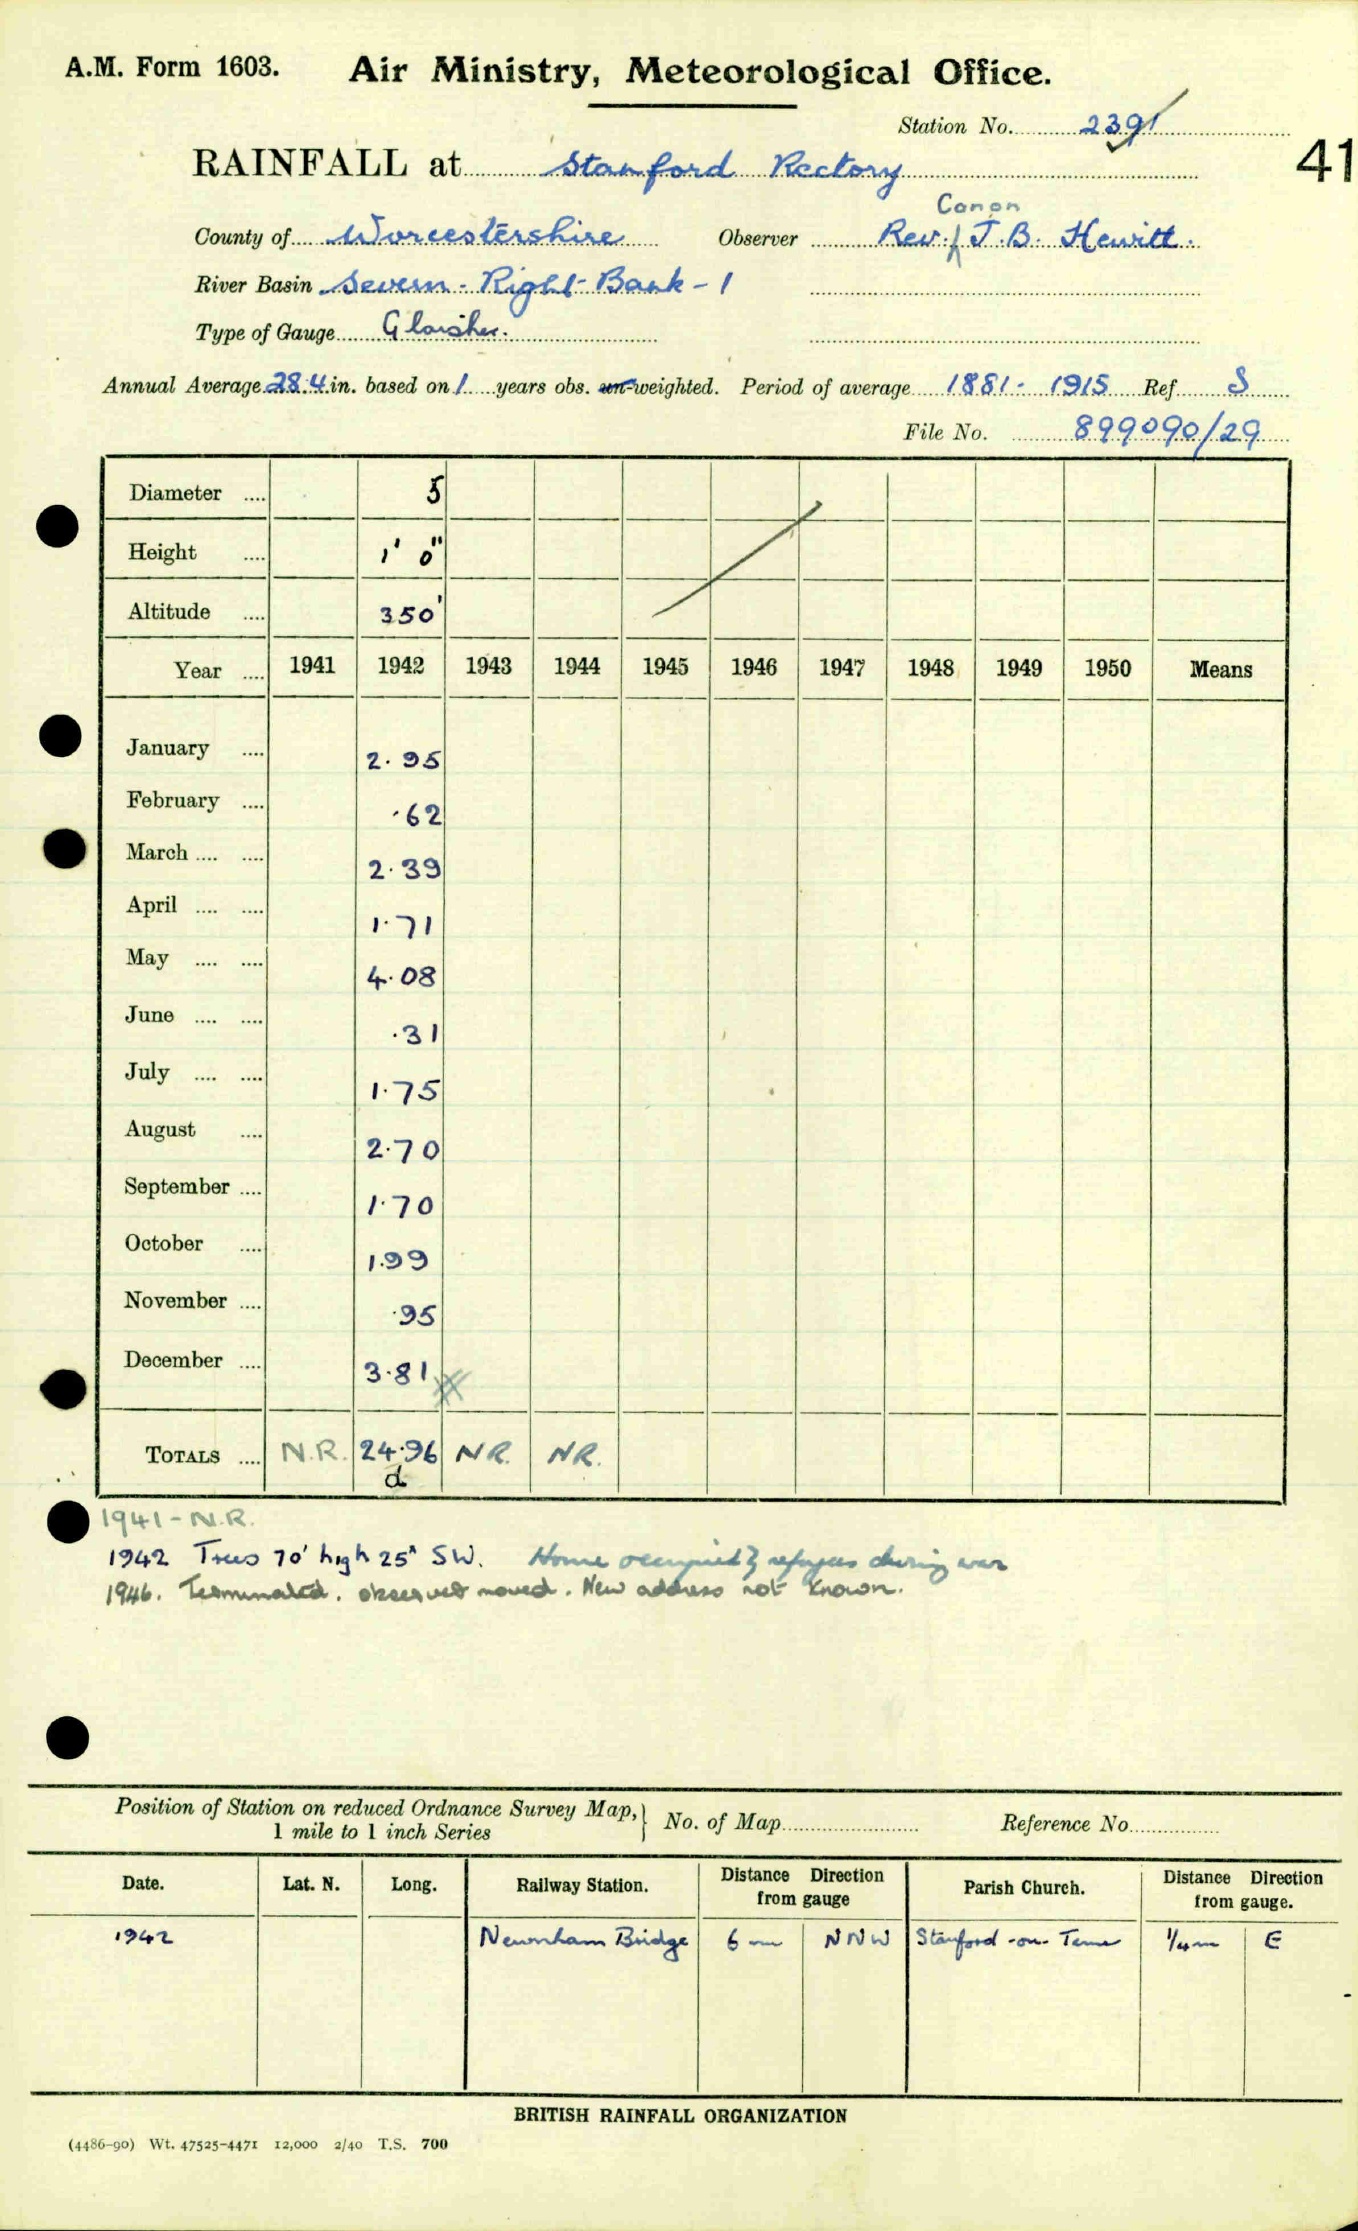 A.M. Form 1603. Air Ministry, Meteorological Office.
Station No. 2391
41
RAINFALL at Stanford Rectory
Canon
County of Worcestershire Observer Rev. J.B. Hewitt.
River Basin Severn - Right Bank - 1
Type of Gauge Glaisher.
Annual Average 28.4 in. based on 1 years obs. un-weighted. Period of average 1881 - 1915 Ref S
File No. 899090/29
Diameter .... 5
Height .... 1' 0"
Altitude .... 350'
Year .... 1941 1942 1943 1944 1945 1946 1947 1948 1949 1950 Means
January .... 2.95
February .... .62
March .... .... 2.39
April .... .... 1.71
May .... .... 4.08
June .... .... .31
July .... .... 1.75
August .... 2.70
September .... 1.70
October .... 1.99
November .... .95
December .... 3.81
TOTALS .... N.R. 24.96 N.R. N.R.
d
1941 - N.R.
1942 Trees 70' high 25' SW. Home occupied by refugees during war
1946. Terminated. observer moved. New address not known.
Position of Station on reduced Ordnance Survey Map, } No. of Map Reference No.
1 mile to 1 inch Series
Date. Lat. N. Long. Railway Station. Distance Direction from gauge Parish Church. Distance Direction from gauge.
1942 Newnham Bridge 6 m NNW Stanford-on-Teme 1/4 m E
BRITISH RAINFALL ORGANIZATION
(4486-90) Wt. 47525-4471 12,000 2/40 T.S. 700